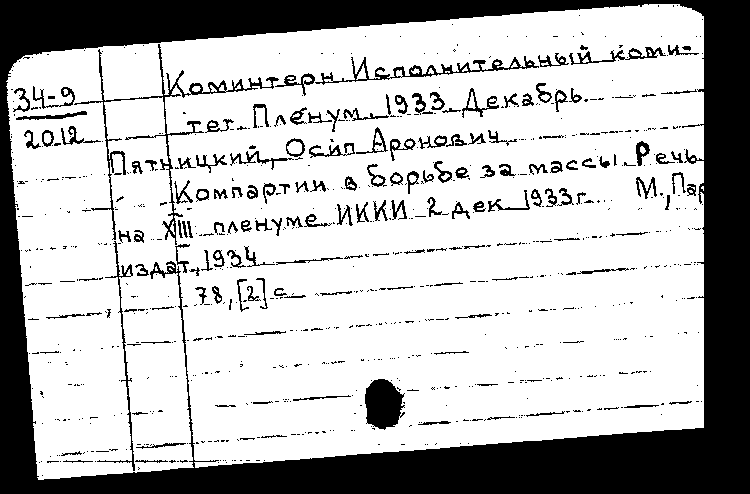 34-9
2012
Коминтерн. Исполнительный коми-
тет. Пленум. 1933. Декабрь.
Пятницкий, Осип Аронович.
Компартии в борьбе за массы. Речь
на XIII пленуме ИККИ 2 дек. 1933 г. М., Пар
издат, 1934
78, [2] с